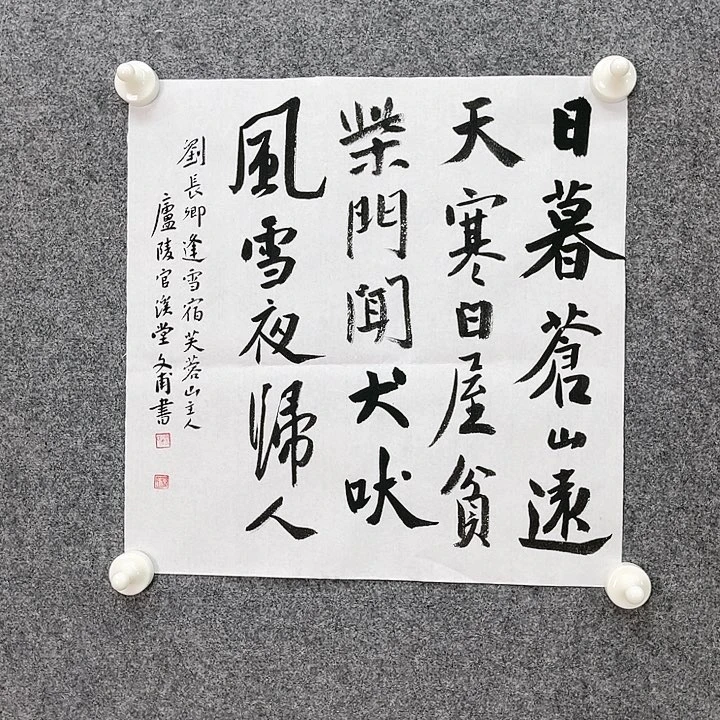 日暮蒼山遠
天寒日屋貧
柴門聞犬吠
風雪夜歸人
劉長卿逢雪宿芙蓉山主人
廬陵官溪堂文甫書